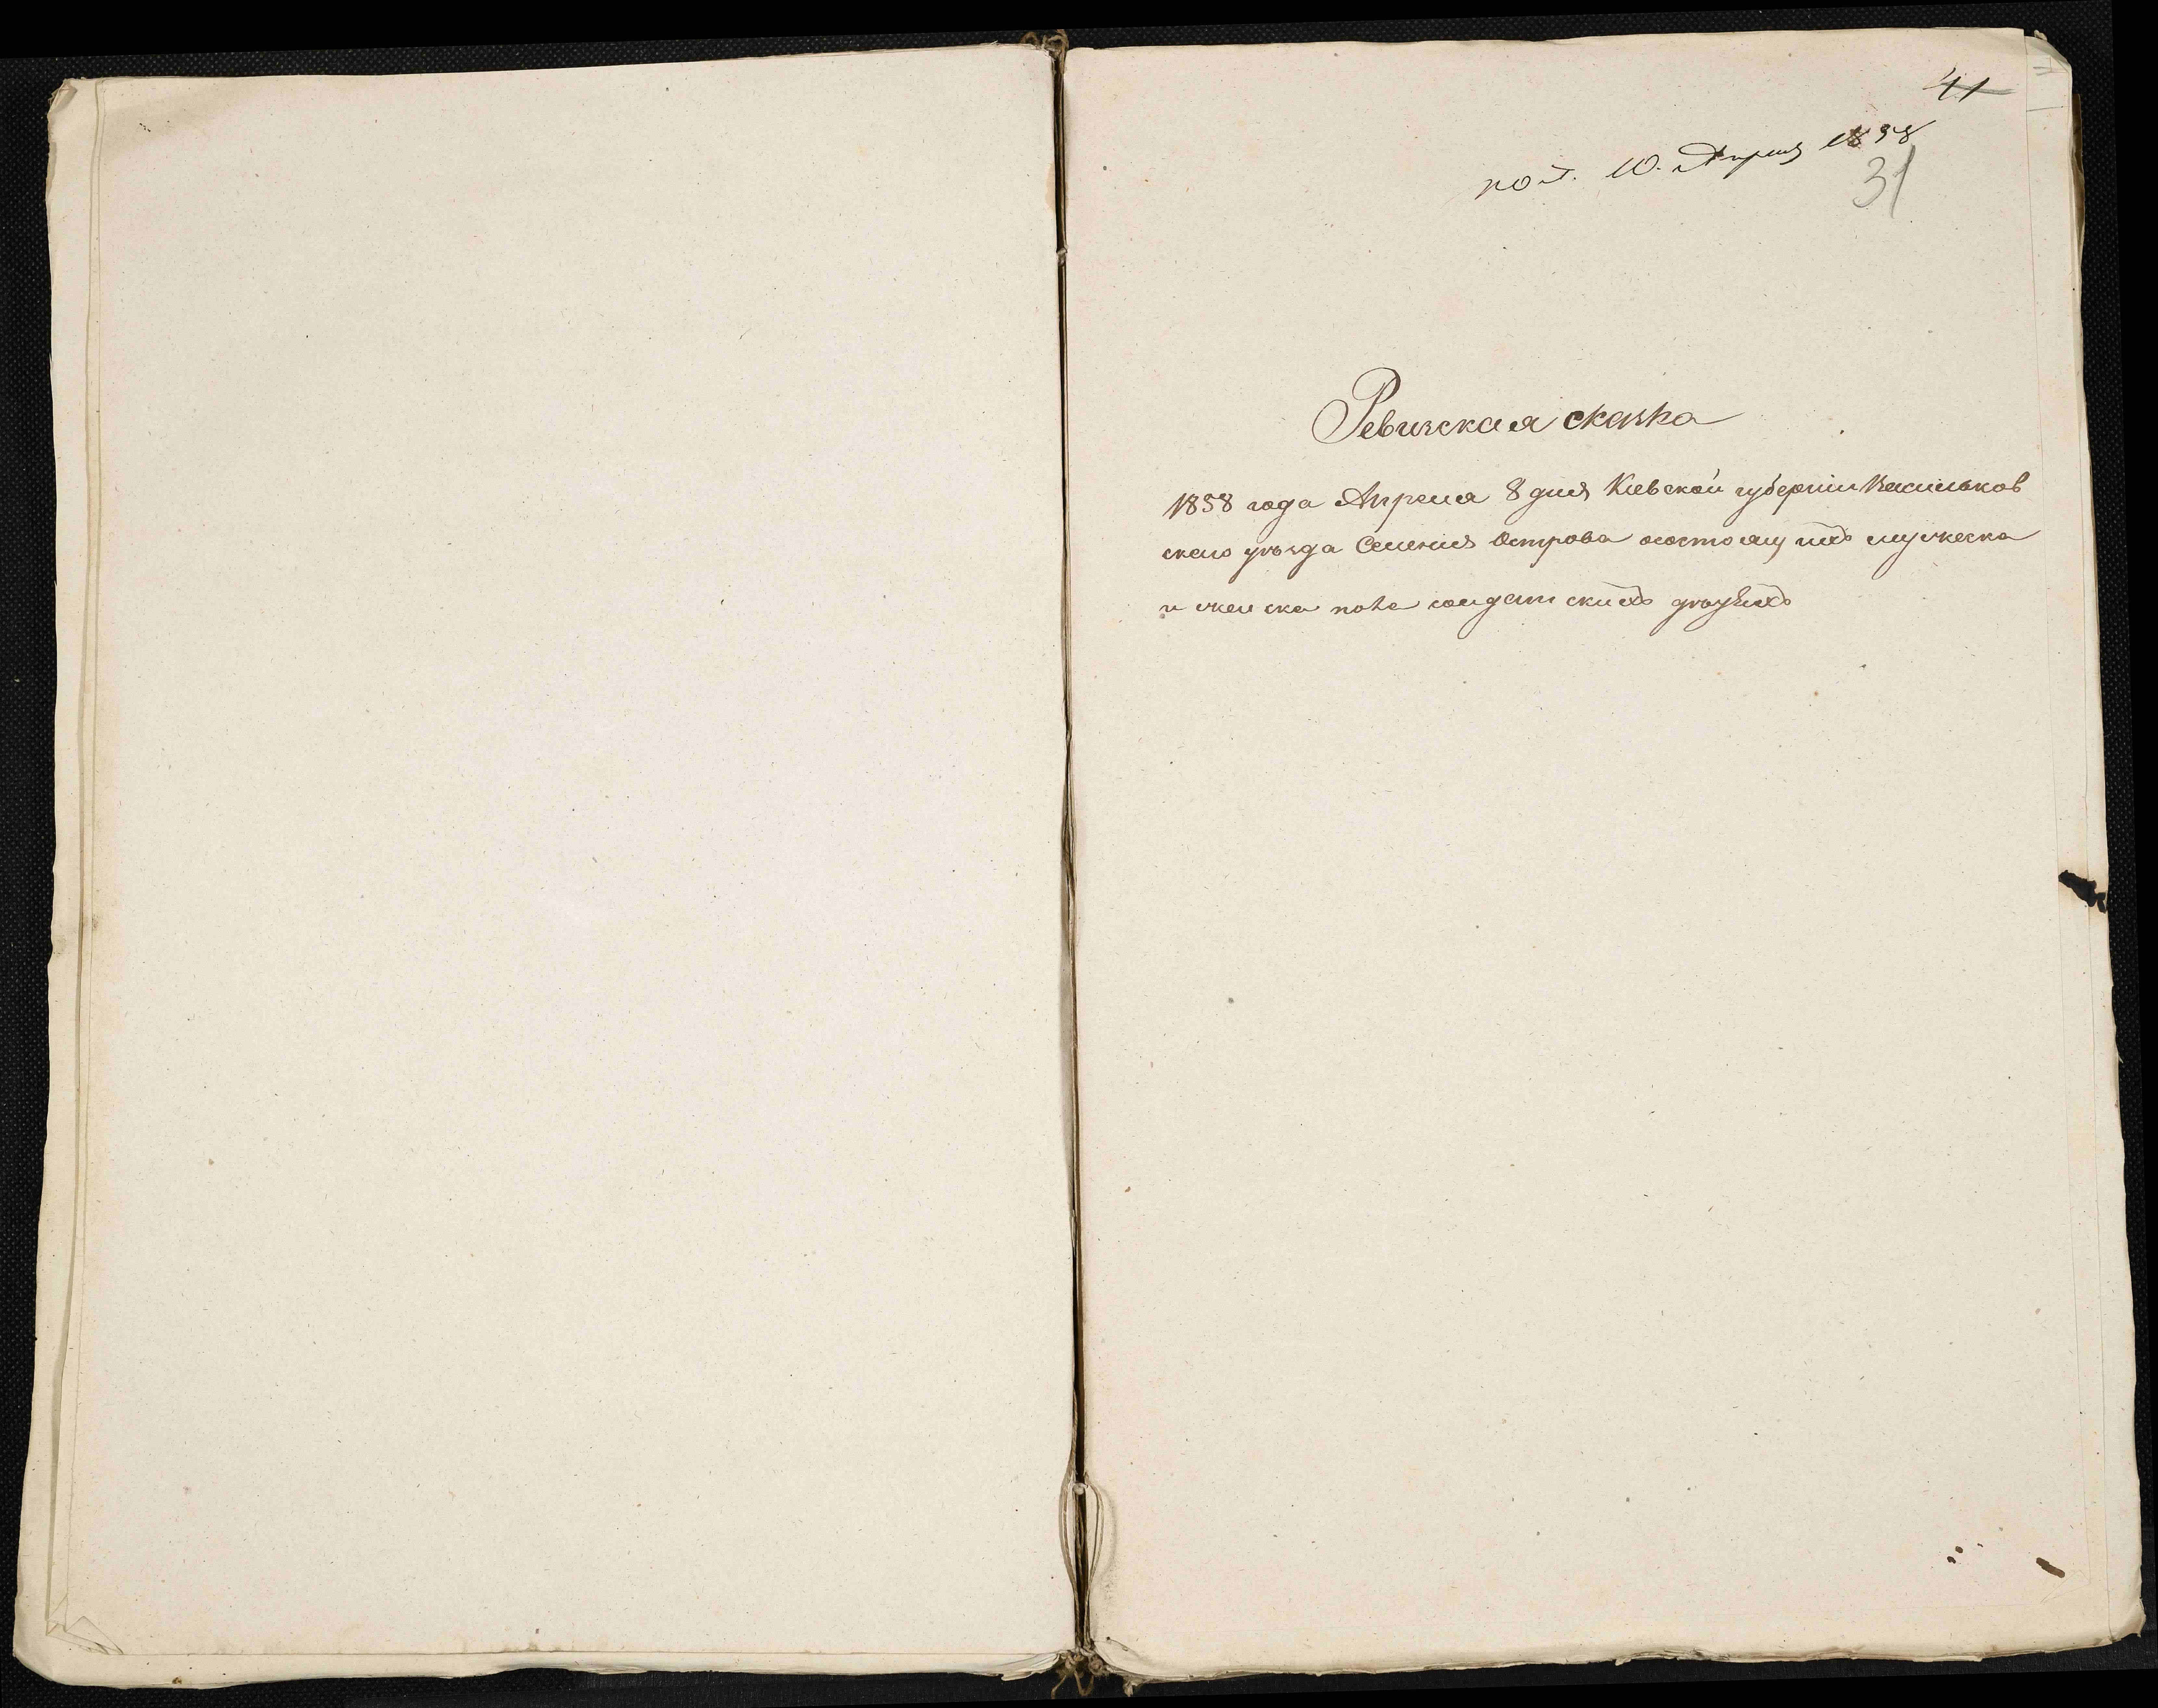 41
пол. 10. Апреля 1858
31
Ревизская сказка
1858 года Апреля 8 дня Киевской губернии Васильков
скаго уезда Селения Острова состоящихъ мужеска
и женска пола солдатскихъ